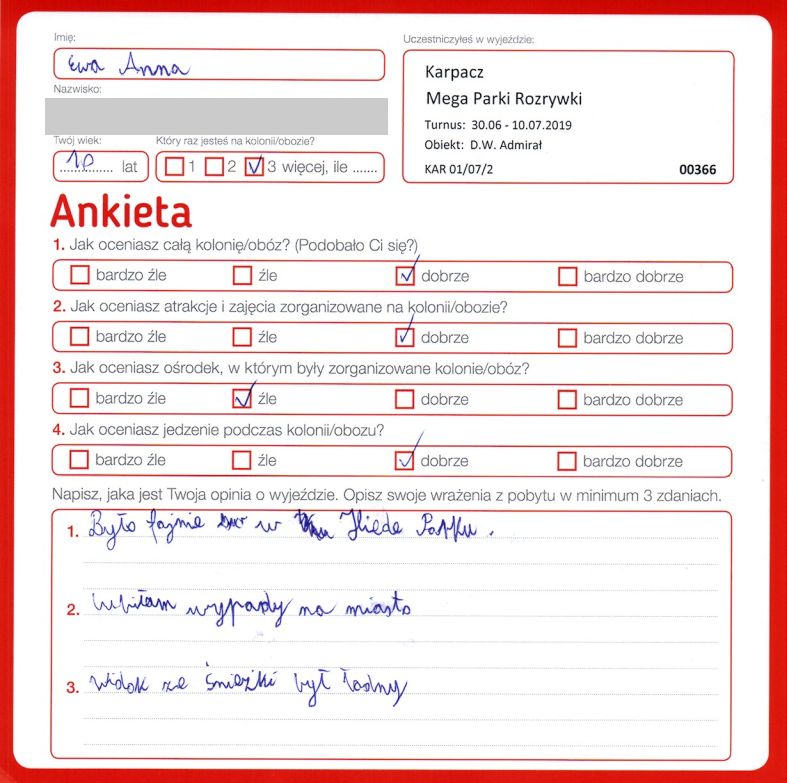 Imię:
Ewa Anna
Nazwisko:
Uczestniczyłeś w wyjeździe:
Karpacz
Mega Parki Rozrywki
Turnus: 30.06 - 10.07.2019
Obiekt: D.W. Admirał
KAR 01/07/2 00366
Twój wiek:
10 lat
Który raz jesteś na kolonii/obozie?
1 2 3 więcej, ile .......
Ankieta
1. Jak oceniasz całą kolonię/obóz? (Podobało Ci się?)
bardzo źle źle dobrze bardzo dobrze
2. Jak oceniasz atrakcje i zajęcia zorganizowane na kolonii/obozie?
bardzo źle źle dobrze bardzo dobrze
3. Jak oceniasz ośrodek, w którym były zorganizowane kolonie/obóz?
bardzo źle źle dobrze bardzo dobrze
4. Jak oceniasz jedzenie podczas kolonii/obozu?
bardzo źle źle dobrze bardzo dobrze
Napisz, jaka jest Twoja opinia o wyjeździe. Opisz swoje wrażenia z pobytu w minimum 3 zdaniach.
1. Było fajnie w Parku.
2. wypady na miasto
3. widok ze śnieżki był ładny